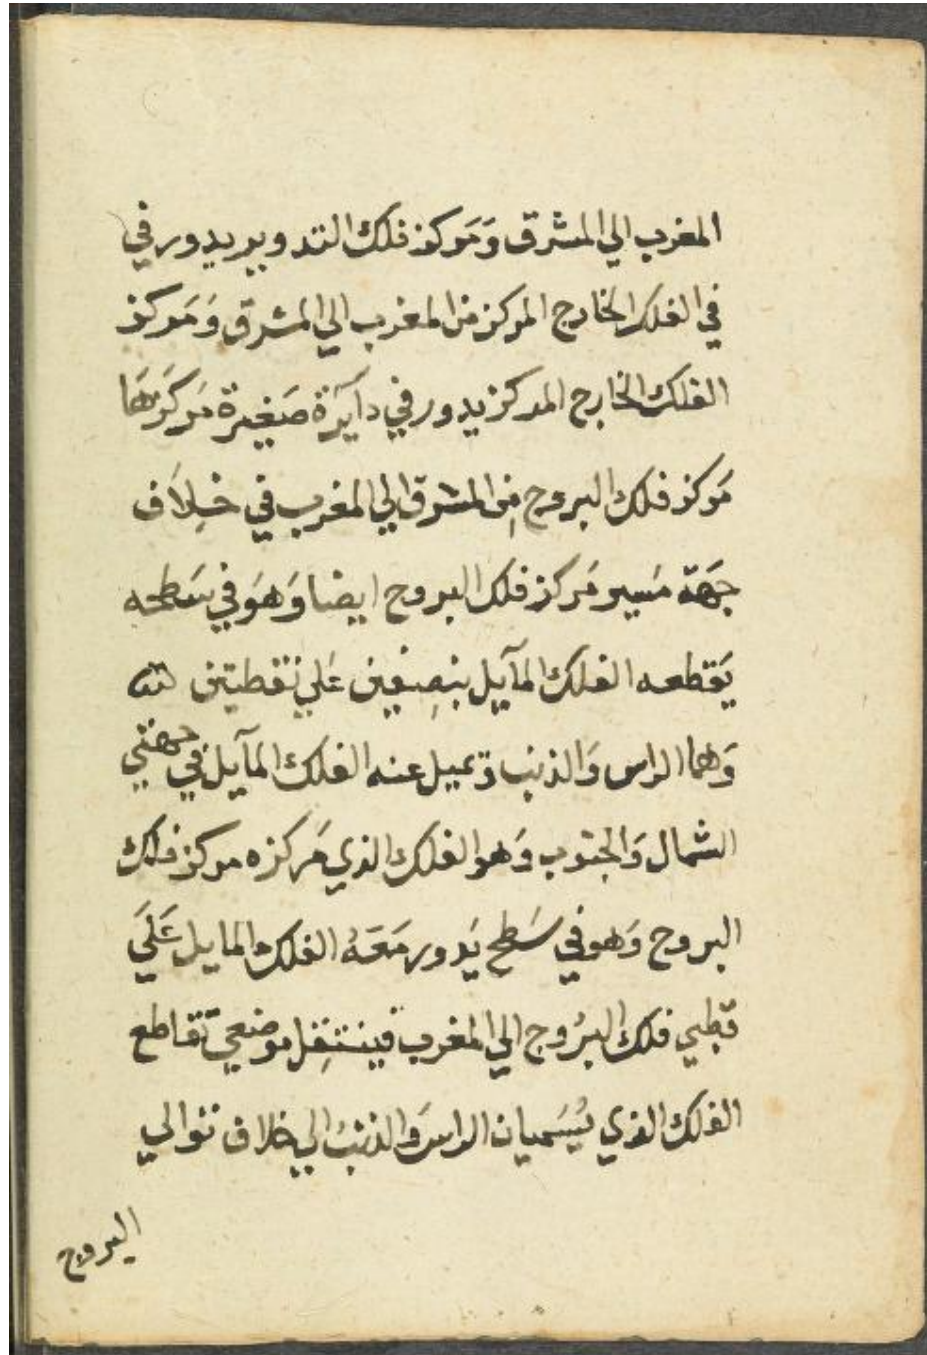 المغرب الي المشرق وَمَركز فلك التدوير يدور في
في الفلك الخارج المركز من المغرب الي المشرق وَمَركز
الفلك الخارج المركز يدور في دآيرَة صَغيرة مَركَزهَا
مَركز فلك البروج مِن المشرق الي المغرب في خِلاَف
جهَة مَسير مَركز فلك البروج ايضا وَهوَ في سَطحه
يَقطعه الفلك المآيل بنصِفين عَلي نقطتين
وَهما الراس وَالذنب وَتميل عنه الفلك المآيل في جهتي
الشمال وَالجنوب وَهو الفلك الذي مَركزه مركز فلك
البروج وَهو في سَطح يَدور مَعَهُ الفلك المايل عَلَي
قطبي فلك البرُوج الي المغرب فينتقِل موضعي تَقاطع
الفلك الذي يُسَميان الراسَ وَالذنبُ الي خلاف توالي
البروج